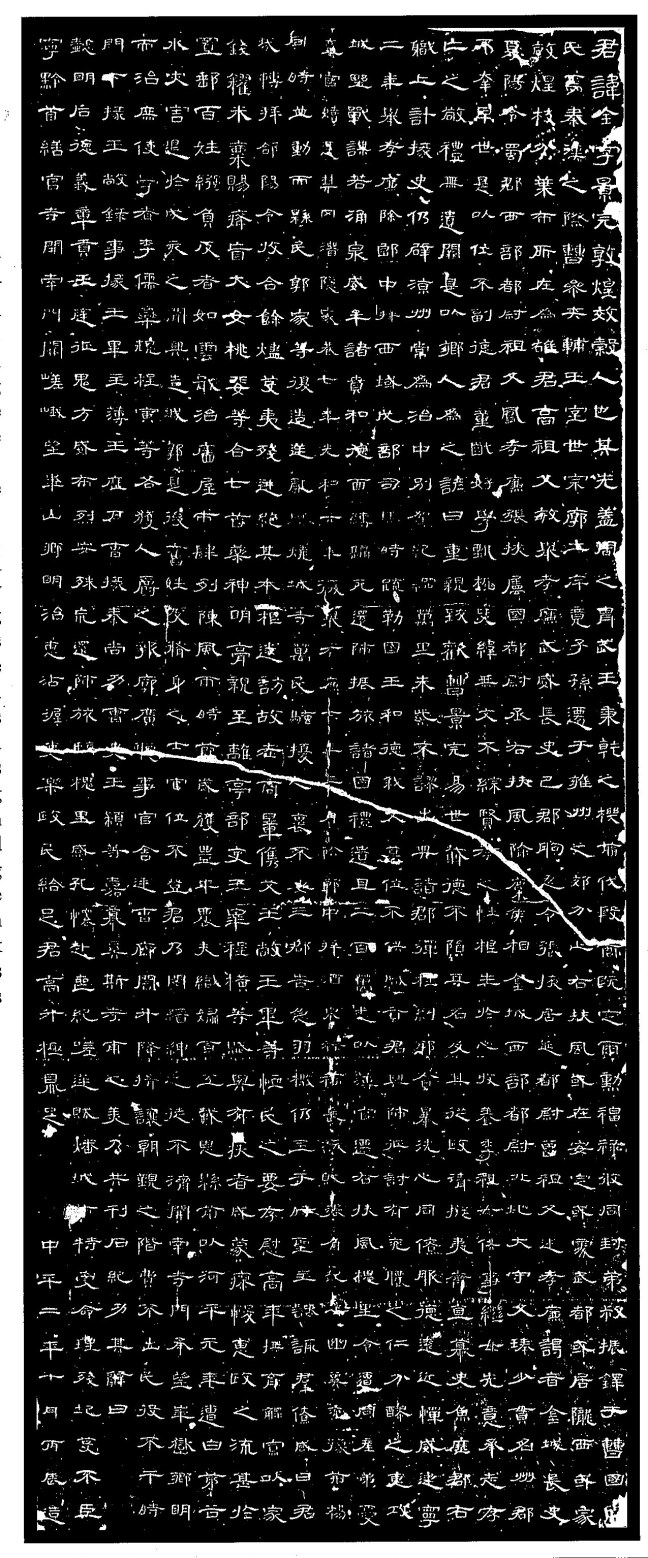 君諱全字景完敦煌效穀人也其先蓋周之胄武王秉乾之機翦伐殷商既定爾勳福祿攸同封弟叔振鐸于曹國因
氏焉秦漢之際曹參夾輔王室世宗廓土斥竟子孫遷于雍州之郊分止右扶風或在安定或處武都或居隴西或家
敦煌枝分葉布所在為雄君高祖父敏舉孝廉武威長史巴郡朐忍令張掖居延都尉曾祖父述孝廉謁者金城長史
夏陽令蜀郡西部都尉祖父鳳孝廉張掖屬國都尉丞右扶風隃麋侯相金城西部都尉北地大守父琫少貫名州郡
不幸早世是以位不副德君童齔好學甄極毖緯無文不綜賢孝之性根生於心收養季祖母供事繼母先意承志存
亡之敬禮無遺闕是以鄉人為之諺曰重親致歡曹景完易世載德不隕其名及其從政清擬夷齊直慕史魚歷郡右
職上計掾史仍辟涼州常為治中別駕紀綱萬里朱紫不謬出典諸郡彈枉糾邪貪暴洗心同僚服德遠近憚威建寧
二年舉孝廉除郎中拜西域戊部司馬時疏勒國王和德弒父篡位不供職貢君興師征討有兗膿之仁分醪之惠攻
城野戰謀若涌泉威牟諸賁和德面縛歸死還師振旅諸國禮遺且二百萬悉以薄官遷右扶風槐里令遭同產弟憂
棄官續遇禁冈潛隱家巷七年光和六年復舉孝廉七年三月除郎中拜酒泉祿福長訞賊張角起兵幽冀兗豫荊楊
同時並動而縣民郭家等復造逆亂燔燒城寺萬民騷擾人裹不安三郡告急羽檄仍至于時聖主諮諏群僚咸曰君
哉轉拜郃陽令收合餘燼芟夷殘迸絕其本根遂訪故老商量儁艾王敞王畢等恤民之要存慰高年撫育鰥寡以家
錢糴米粟賜癃盲大女桃婓等合七首藥神明膏親至離亭部吏王宰程橫等賦與有疾者咸蒙瘳悛惠政之流甚於
置郵百姓繈負反者如雲戢治廧屋市肆列陳風雨時節歲獲豐年農夫織婦百工戴恩縣前以河平元年遭白茅谷
水災害退於戊亥之間興造城郭是後舊姓及脩身之士官位不登君乃閔縉紳之徒不濟開南寺門承望華嶽鄉明
而治庶使學者李儒欒規程寅等各獲人爵之報廓廣聽事官舍廷曹廊閤升降揖讓朝覲之階費不出民役不干時
門下掾王敞錄事掾王畢主薄王歷戶曹掾秦尚功曹史王顓等嘉慕奚斯考甫之美乃共刊石紀功其辭曰
懿明后德義章貢王庭征鬼方威布烈安殊荒還師旅臨槐里感孔懷赴喪紀嗟逆賊燔城市特受命理殘圮芟不臣
寧黔首繕官寺開南門闕嵯峨望華山鄉明治惠沾渥吏樂政民給足君高升極鼎足 中平二年十月丙辰造